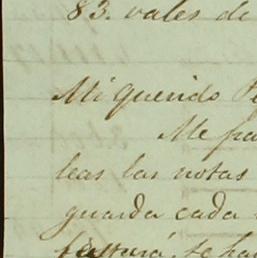 83. vales de
Mi querido
Me
leas las notas
guarda cada
te